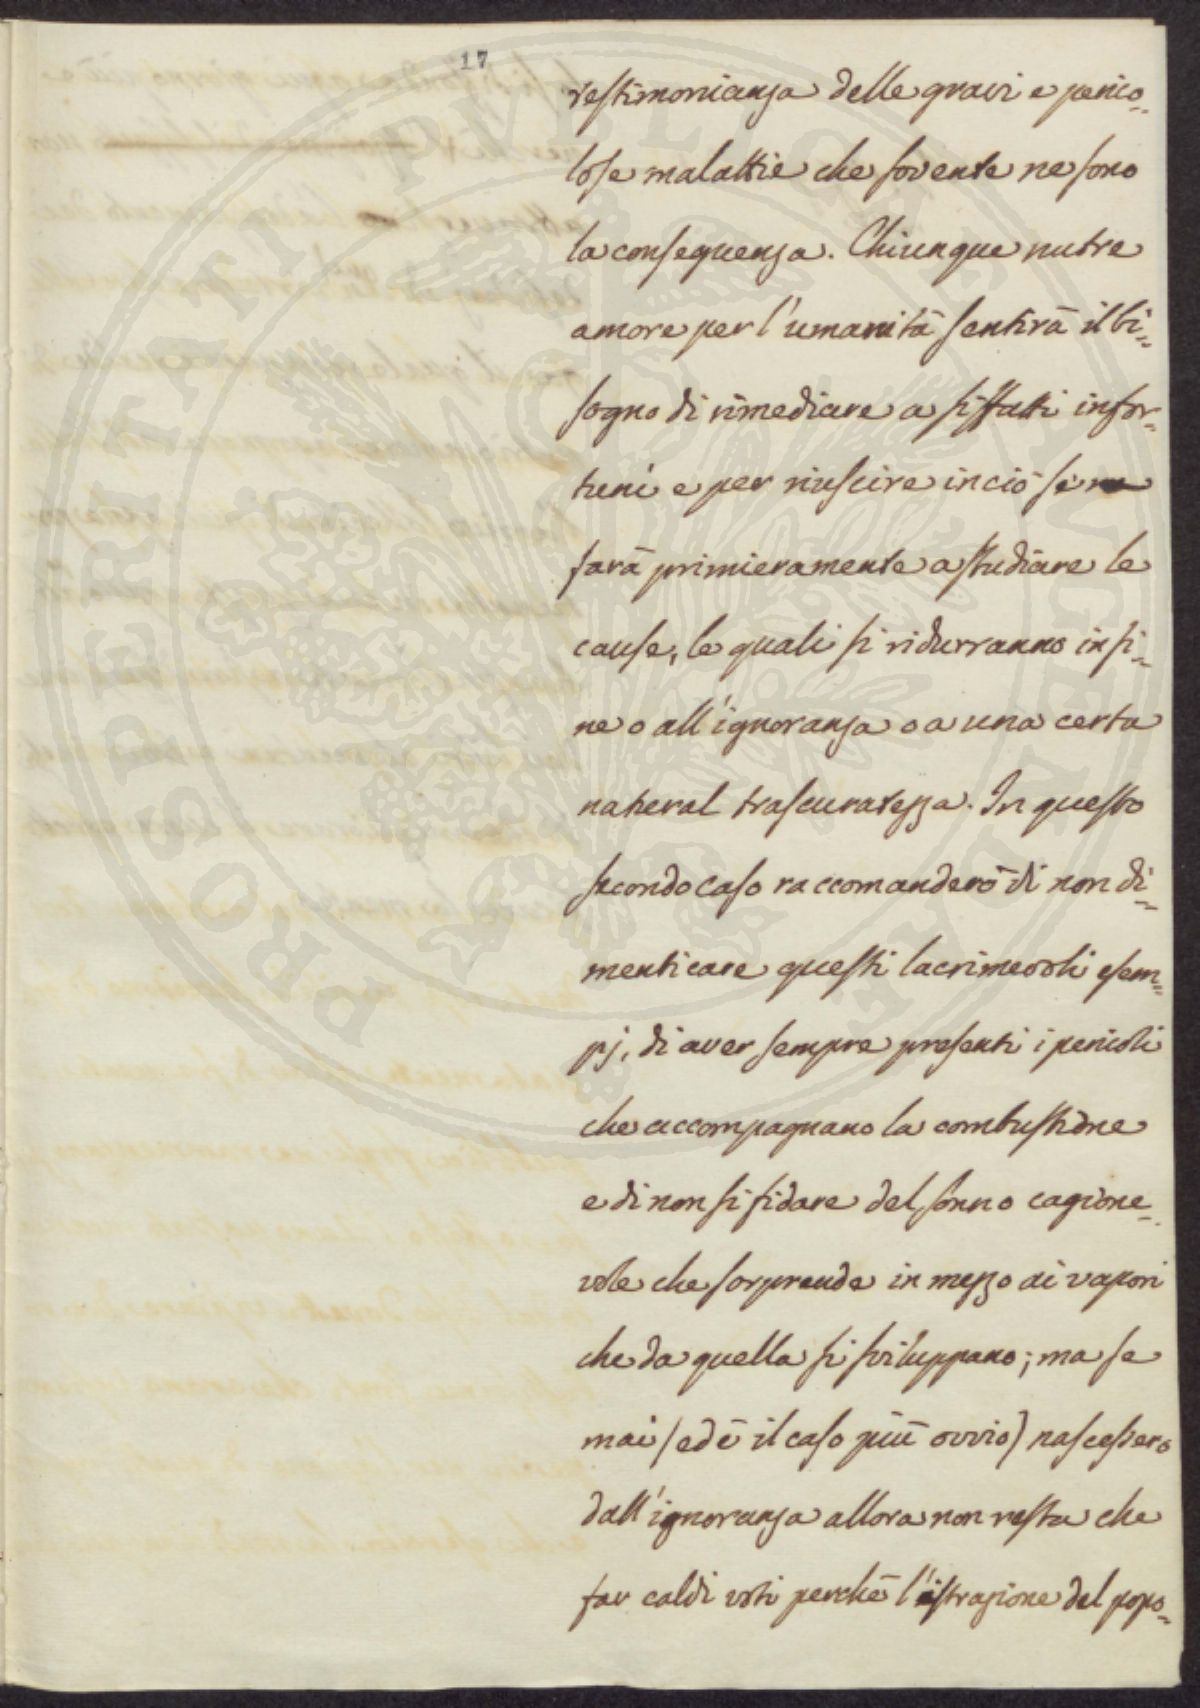 17
testimonianza delle gravi e perico=
lose malattie che sovente ne sono
la conseguenza. Chiunque nutre
amore per l'umanità sentirà il bi=
sogno di rimediare a siffatti infor=
tuni e per riuscire in ciò si
farà primieramente a studiare le
cause, le quali si ridurranno infi=
ne o all'ignoranza o a una certa
natural trascuratezza. In questo
secondo caso raccomanderò di non di=
menticare questi lacrimevoli esem=
pj, di aver sempre presenti i pericoli
che accompagnano la combustione
e di non si fidare del sonno cagione=
vole che sorprende in mezzo ai vapori
che da quella si sviluppano; ma se
mai (ed è il caso più ovvio) nascessero
dall'ignoranza allora non resta che
far caldi voti perchè l'istrazione del popo=
PROSPERITATI PVBLICAE AVGENDAE